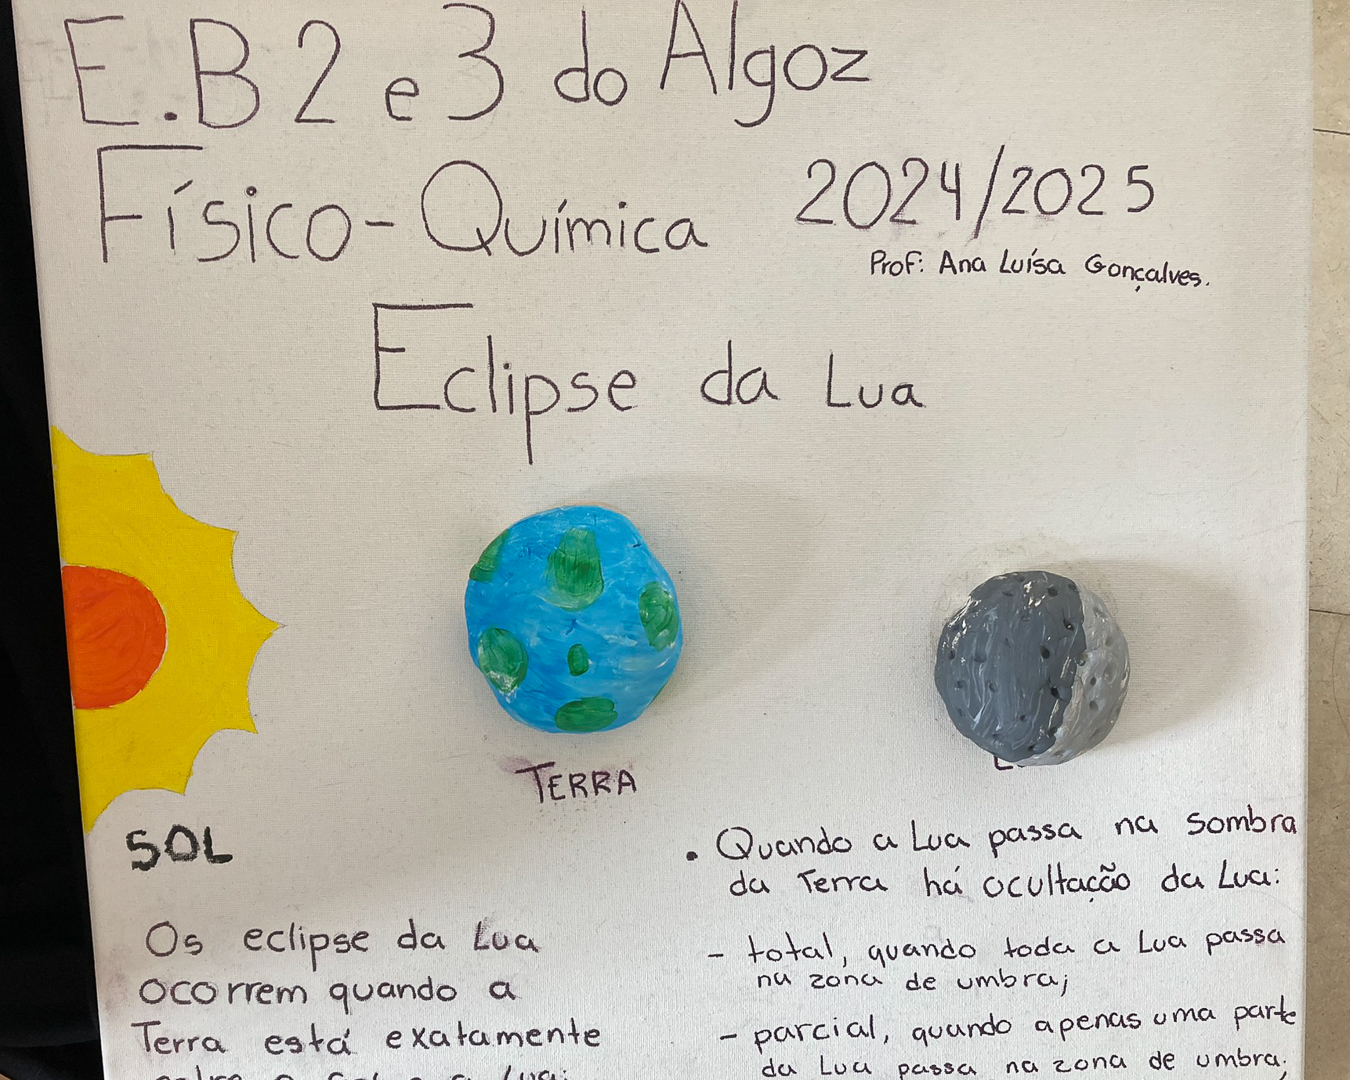 E.B 2 e 3 do Algoz
Físico-Química
2024/2025
Prof: Ana Luísa Gonçalves.
Eclipse da Lua
TERRA
SOL
Os eclipse da Lua
ocorrem quando a
Terra está exatamente
. Quando a Lua passa na sombra
da Terra há ocultação da Lua:
- total, quando toda a Lua passa
na zona de umbra;
- parcial, quando apenas uma parte
da Lua passa na zona de umbra;